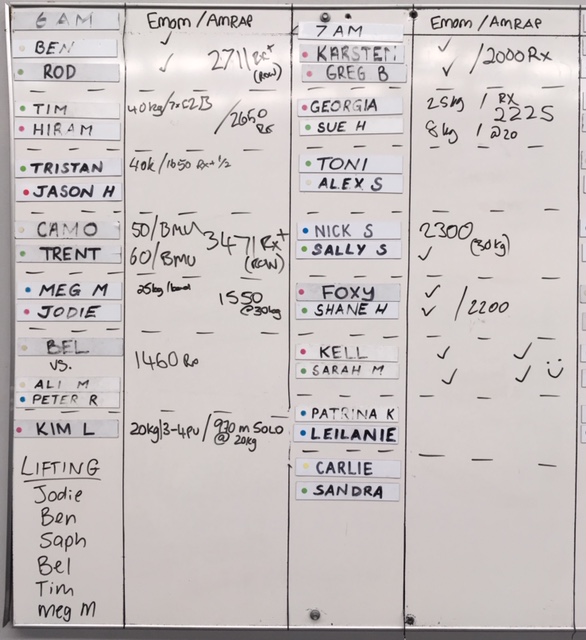 6 AM
Emom / AMRAP
BEN ✓
ROD ✓ 2711 Rx+
(ROW)
TIM 40kg/7xC2B
HIRAM /2650
Rx
TRISTAN 40k/1650 Rx+ 1/2
JASON H
CAMO 50/BMU 3471 Rx+
TRENT 60/BMU (ROW)
MEG M 25kg/band 1550
JODIE @30kg
BEL 1460 Rx
VS.
ALI M
PETER R
KIM L 20kg/3-4pu/970m SOLO
@ 20kg
LIFTING
Jodie
Ben
Saph
Bel
Tim
Meg M
7 AM
Emom / AMRAP
KARSTEN ✓ /2000 Rx
GREG B ✓
GEORGIA 25kg / RX
2225
SUE H 8kg / @20
TONI
ALEX S
NICK S 2300
(30kg)
SALLY S ✓
FOXY ✓
SHANE H ✓ /2200
KELL ✓ ✓
SARAH M ✓ ✓ :)
PATRINA K
LEILANIE
CARLIE
SANDRA